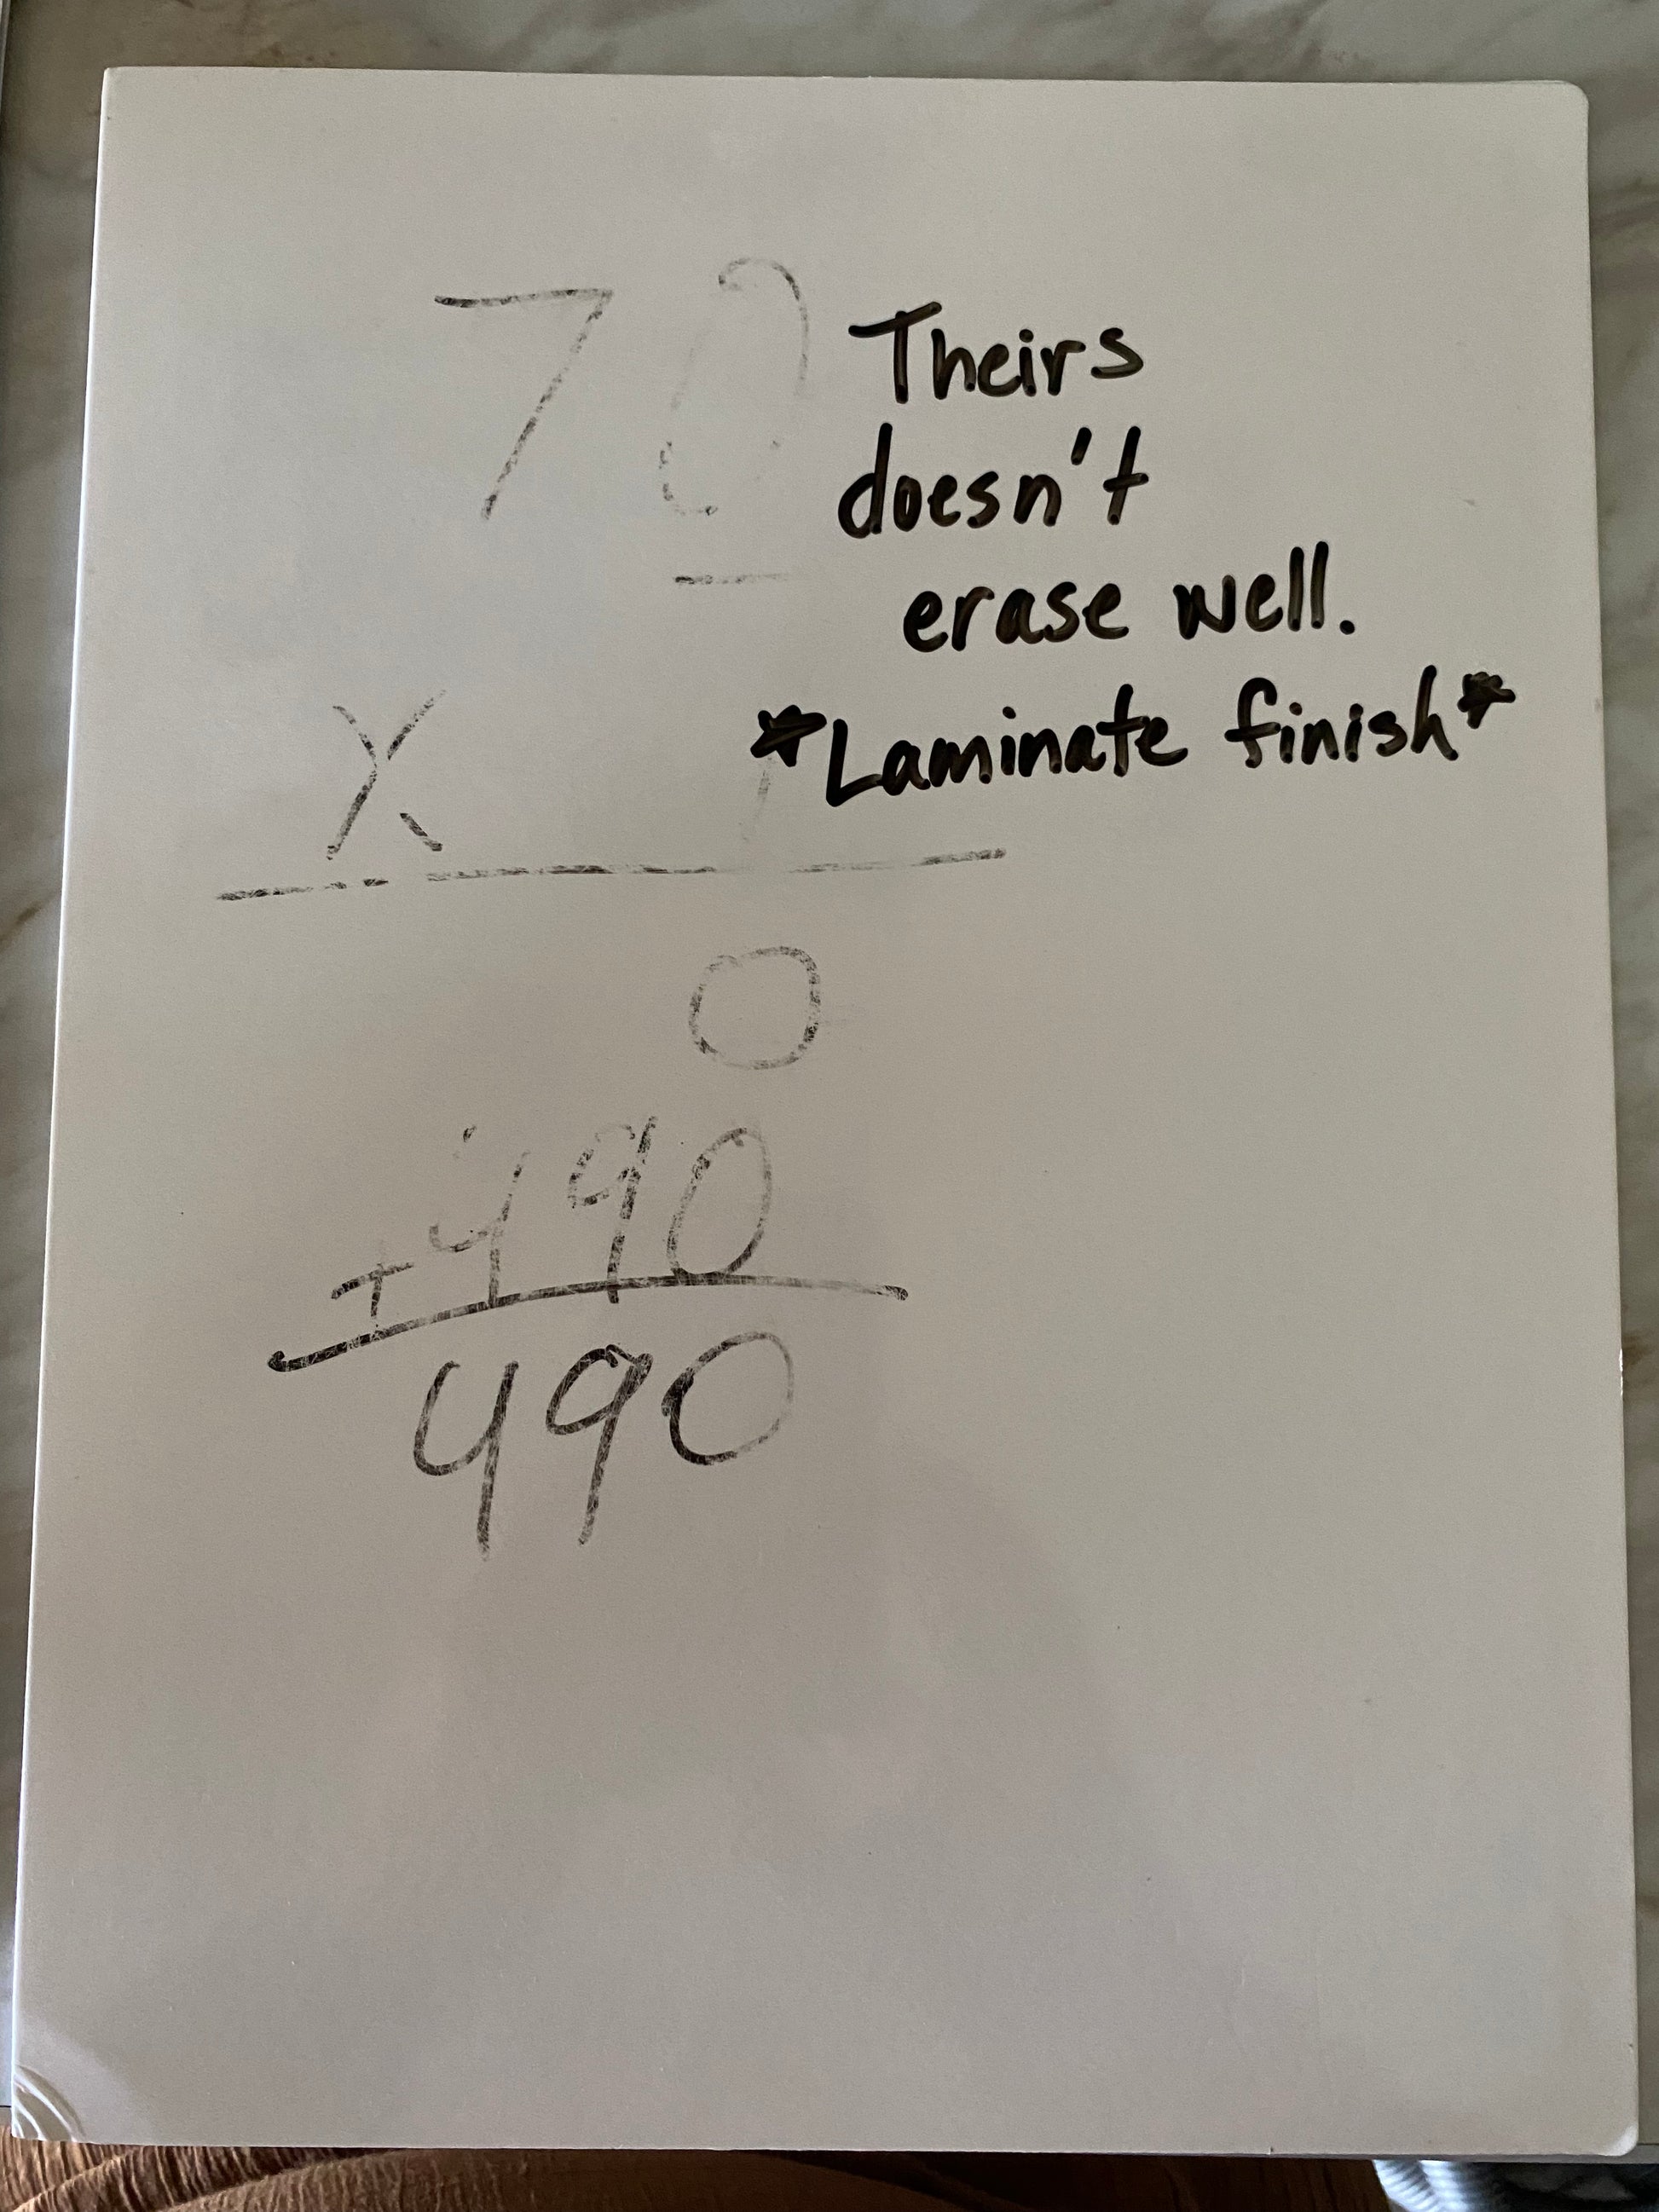 70
Theirs
doesn't
erase well.
*Laminate finish*
X
0
+490
490